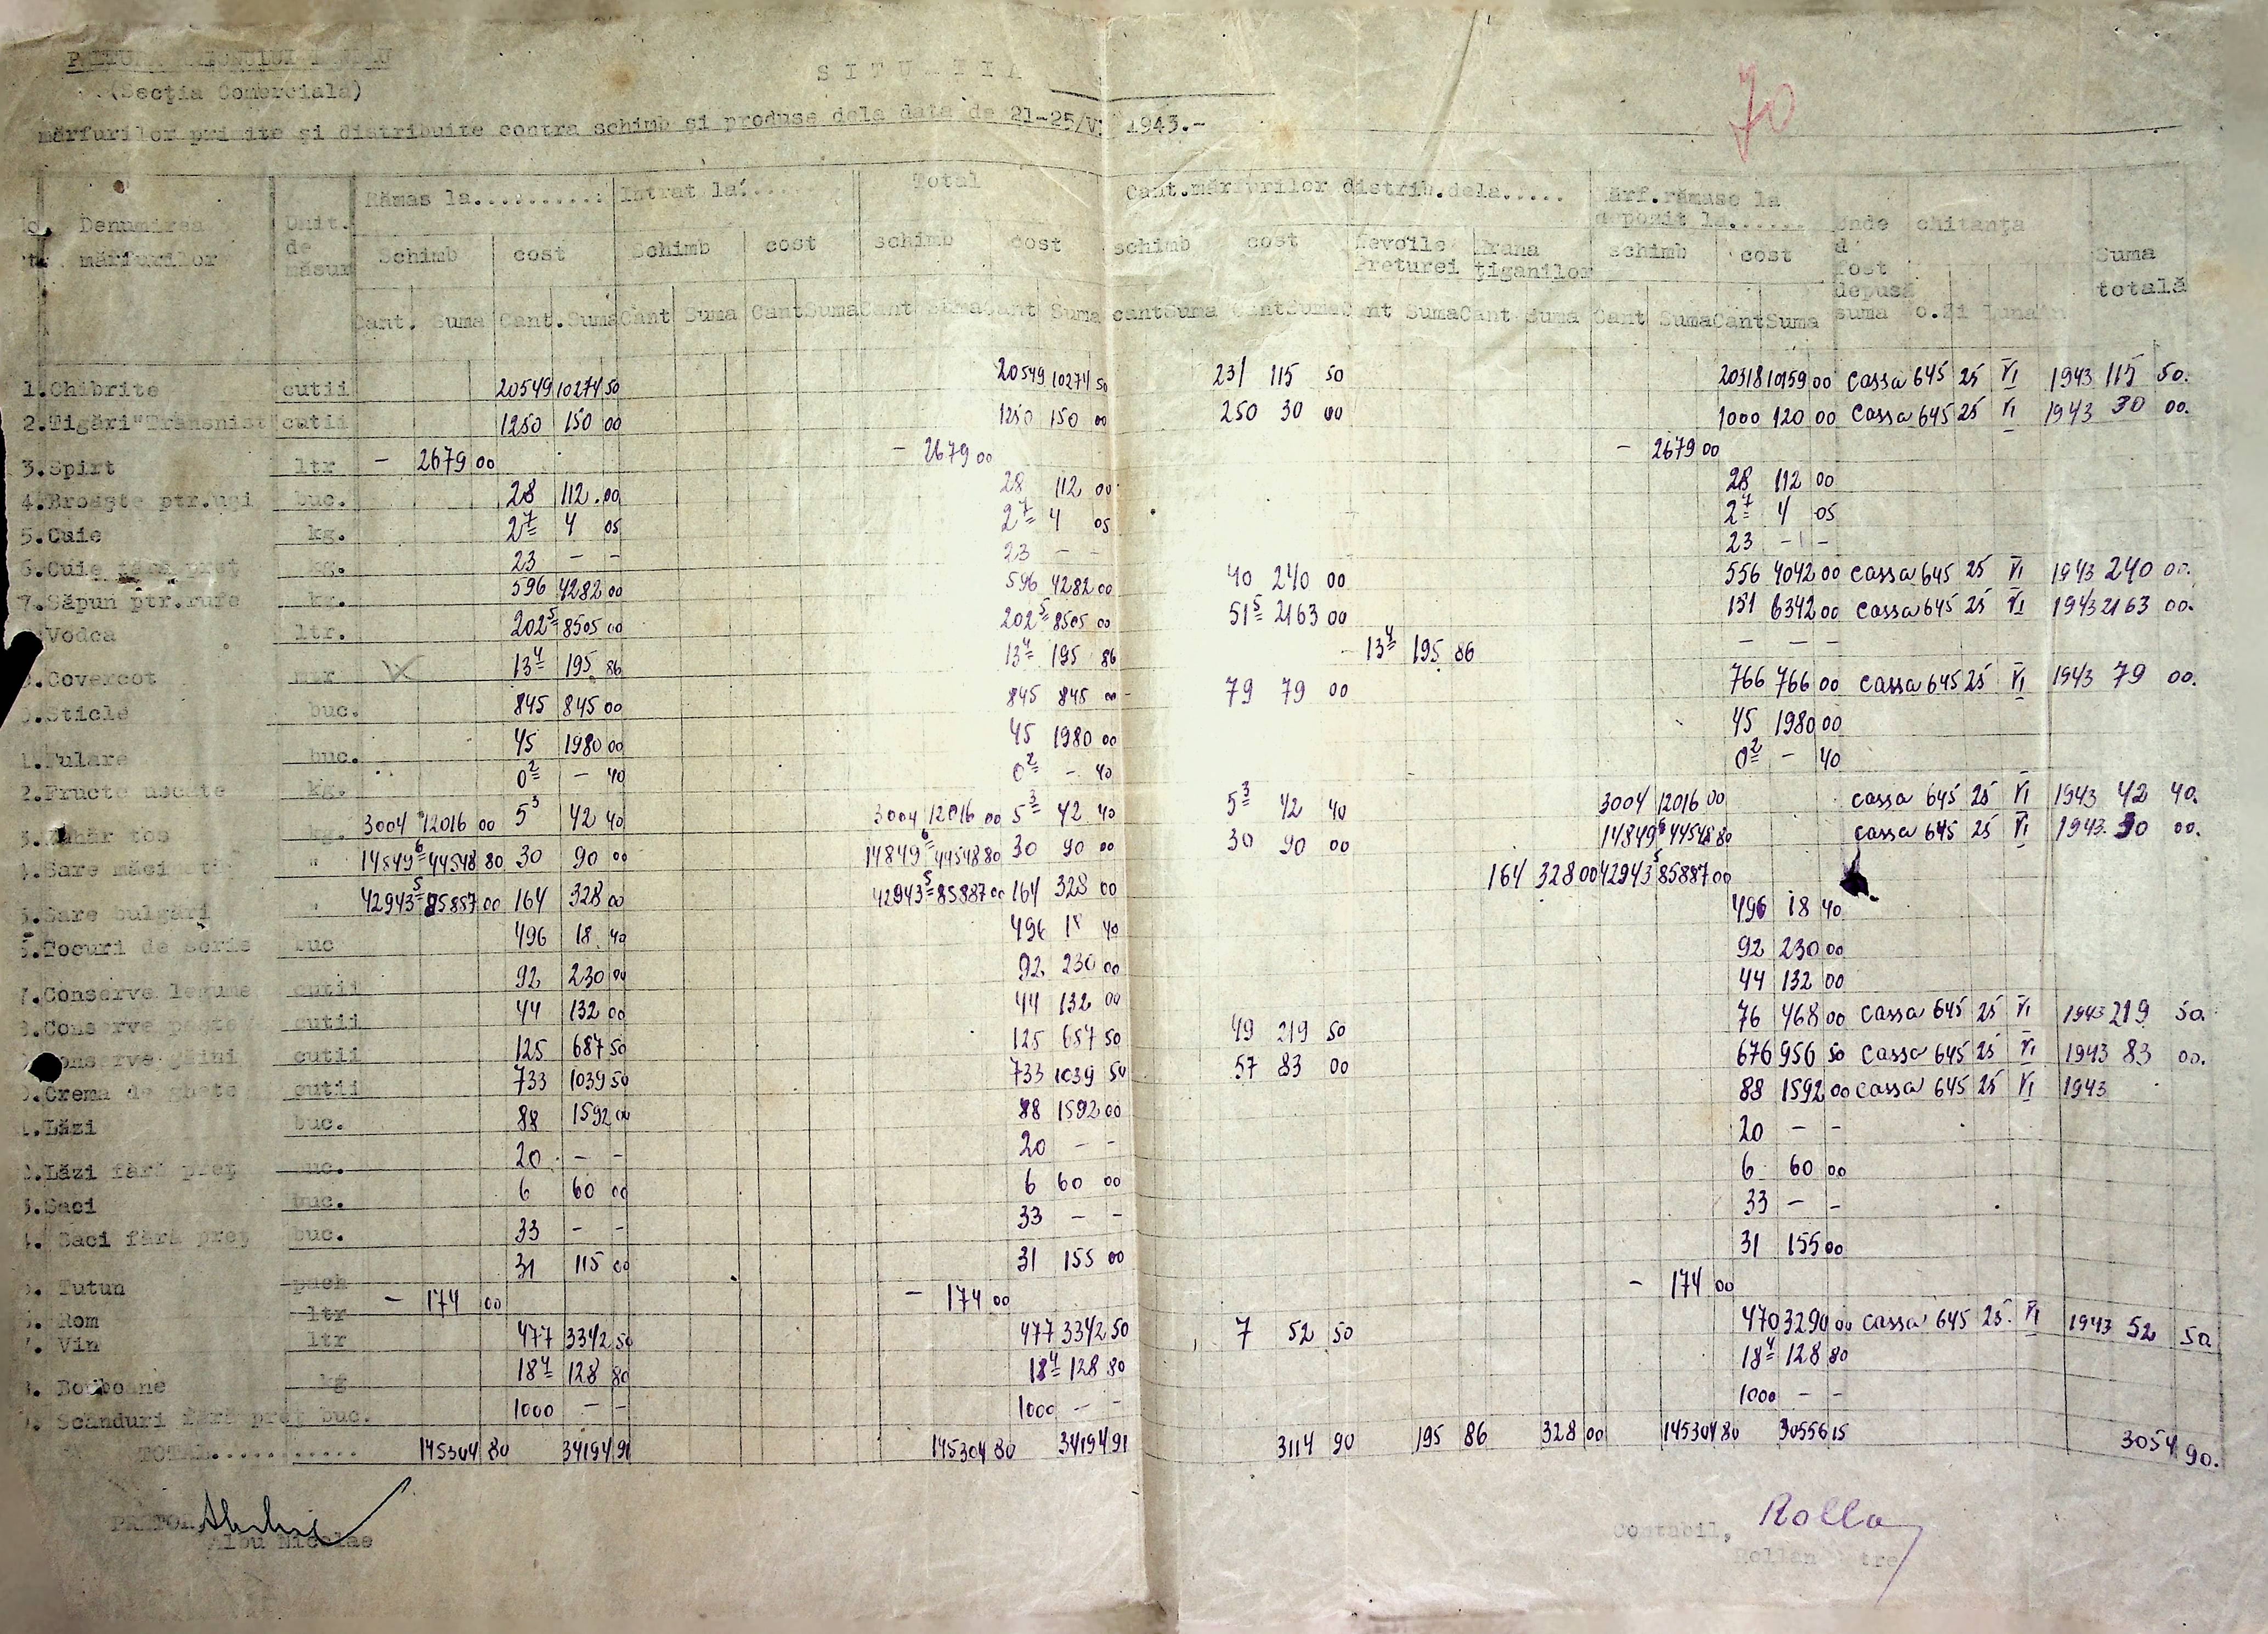 (Secţia Comerciala)
SITUAŢIA
mărfurilor primite şi distribuite contra schimb şi produse dela data de 21-25/VI 1943.-
70
Rămas la..........: Intrat la....... Total Cant.mărfurilor distrib.dela..... Mărf.rămase la depozit la...... Unde a fost depusă suma chitanţa Suma totală
No. Denumirea mărfurilor Unit. de măsur
Schimb cost Schimb cost schimb cost schimb cost Nevoile Preturei Hrana ţiganilor schimb cost
Cant. Suma Cant. Suma Cant Suma Cant Suma Cant Suma Cant Suma cant Suma Cant Suma Cant Suma Cant Suma Cant Suma Cant Suma No. Zi Luna
1.Chibrite cutii 20549 10274 50 20549 10274 50 231 115 50 20318 10159 00 cassa 645 25 VI 1943 115 50.
2.Tigări"Transnist" cutii 1250 150 00 1250 150 00 250 30 00 1000 120 00 cassa 645 25 VI 1943 30 00.
3.Spirt ltr - 2679 00 - 2679 00 - 2679 00
4.Broaşte ptr.uşi buc. 28 112.00 28 112 00 28 112 00
5.Cuie kg. 2 7 4 05 2 7 4 05 2 7 4 05
6.Cuie fără preţ kg. 23 - - 23 - - 23 - -
7.Săpun ptr.rufe kg. 596 4282 00 596 4282 00 40 240 00 556 4042 00 cassa 645 25 VI 1943 240 00.
Vodca ltr. 202 5 8505 00 202 5 8505 00 51 5 2163 00 151 6342 00 cassa 645 25 VI 1943 2163 00.
.Covercot mtr 13 4 195 86 13 4 195 86 13 4 195 86 - - -
.Sticle buc. 845 845 00 845 845 00 79 79 00 766 766 00 cassa 645 25 VI 1943 79 00.
1.Fulare buc. 45 1980 00 45 1980 00 45 1980 00
2.Fructe uscate kg. 0 2 - 40 0 2 - 40 0 2 - 40
3.Zahăr tos kg. 3004 12016 00 5 3 42 40 3004 12016 00 5 3 42 40 5 3 42 40 3004 12016 00 cassa 645 25 VI 1943 42 40.
4.Sare măcinată " 14849 6 44548 80 30 90 00 14849 6 44548 80 30 90 00 30 90 00 14849 6 44548 80 cassa 645 25 VI 1943. 90 00.
5.Sare bulgări 42943 5 85887 00 164 328 00 42943 5 85887 00 164 328 00 164 328 00 42943 5 85887 00
6.Tocuri de scris buc 496 18 40 496 18 40 496 18 40
7.Conserve legume cutii 92 230 00 92 230 00 92 230 00
8.Conserve peşte cutii 44 132 00 44 132 00 44 132 00
Conserve găini cutii 125 687 50 125 687 50 49 219 50 76 468 00 cassa 645 25 VI 1943 219 50.
.Crema de ghete cutii 733 1039 50 733 1039 50 57 83 00 676 956 50 cassa 645 25 VI 1943 83 00.
1.Lăzi buc. 88 1592 00 88 1592 00 88 1592 00 cassa 645 25 VI 1943
2.Lăzi fără preţ buc. 20 - - 20 - - 20 - -
3.Saci buc. 6 60 00 6 60 00 6 60 00
4. Saci fără preţ buc. 33 - - 33 - - 33 - -
5. Tutun pach 31 115 00 31 155 00 31 155 00
6. Rom ltr - 174 00 - 174 00 - 174 00
7. Vin ltr 477 3342 50 477 3342 50 7 52 50 470 3290 00 cassa 645 25. VI 1943 52 50
8. Bomboane kg 18 4 128 80 18 4 128 80 18 4 128 80
9. Scânduri fără preţ buc. 1000 - - 1000 - - 1000 - -
TOTAL........... 145304 80 34194 91 145304 80 34194 91 3114 90 195 86 328 00 145304 80 30556 15 3054 90.
PRETOR,
Albu Nicolae
Contabil, Rolla